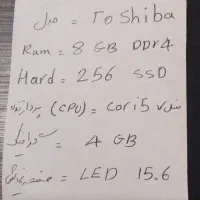 مدل = Toshiba
Ram = 8 GB DDR4
Hard = 256 SSD
پردازنده (CPU) = Cori5 نسل ۷
گرافیک = 4 GB
صفحه نمایش = LED 15.6